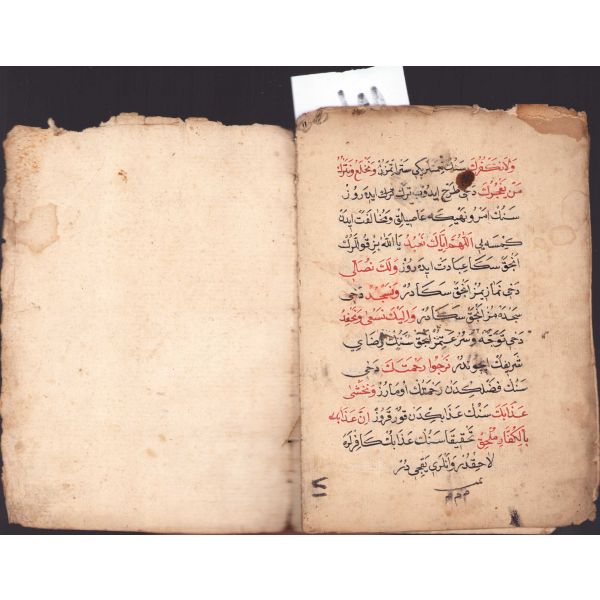 وَلَا نَكْفُرُكَ سنك نعمتلركى ستر ايتمزز وَنَخْلَعُ وَنَتْرُكُ
مَنْ يَفْجُرُكَ دخى طرح ايدوب ترك ايده روز
سنك امر و نهيكه عاصيلق و مخالفت ايدن
كمسه يى اَللّٰهُمَّ اِيَّاكَ نَعْبُدُ يا الله بز قوللرك
انجق سكا عبادت ايده روز وَلَكَ نُصَلِّى
دخى نمازيمز انجق سكا در وَنَسْجُدُ دخى
سجده مز انجق سكا در وَاِلَيْكَ نَسْعٰى وَنَحْفِدُ
دخى توجه و سرعتمز انجق سنك رضاى
شريفك ايچوندر نَرْجُوا رَحْمَتَكَ دخى
سنك فضلكدن رحمتك اومارز وَنَخْشٰى
عَذَابَكَ سنك عذابكدن قورقروز اِنَّ عَذَابَكَ
بِالْكُفَّارِ مُلْحِقٌ تحقيقا سنك عذابك كافرلره
لاحقدر و انلرى يقيجى در
تمت
م م م